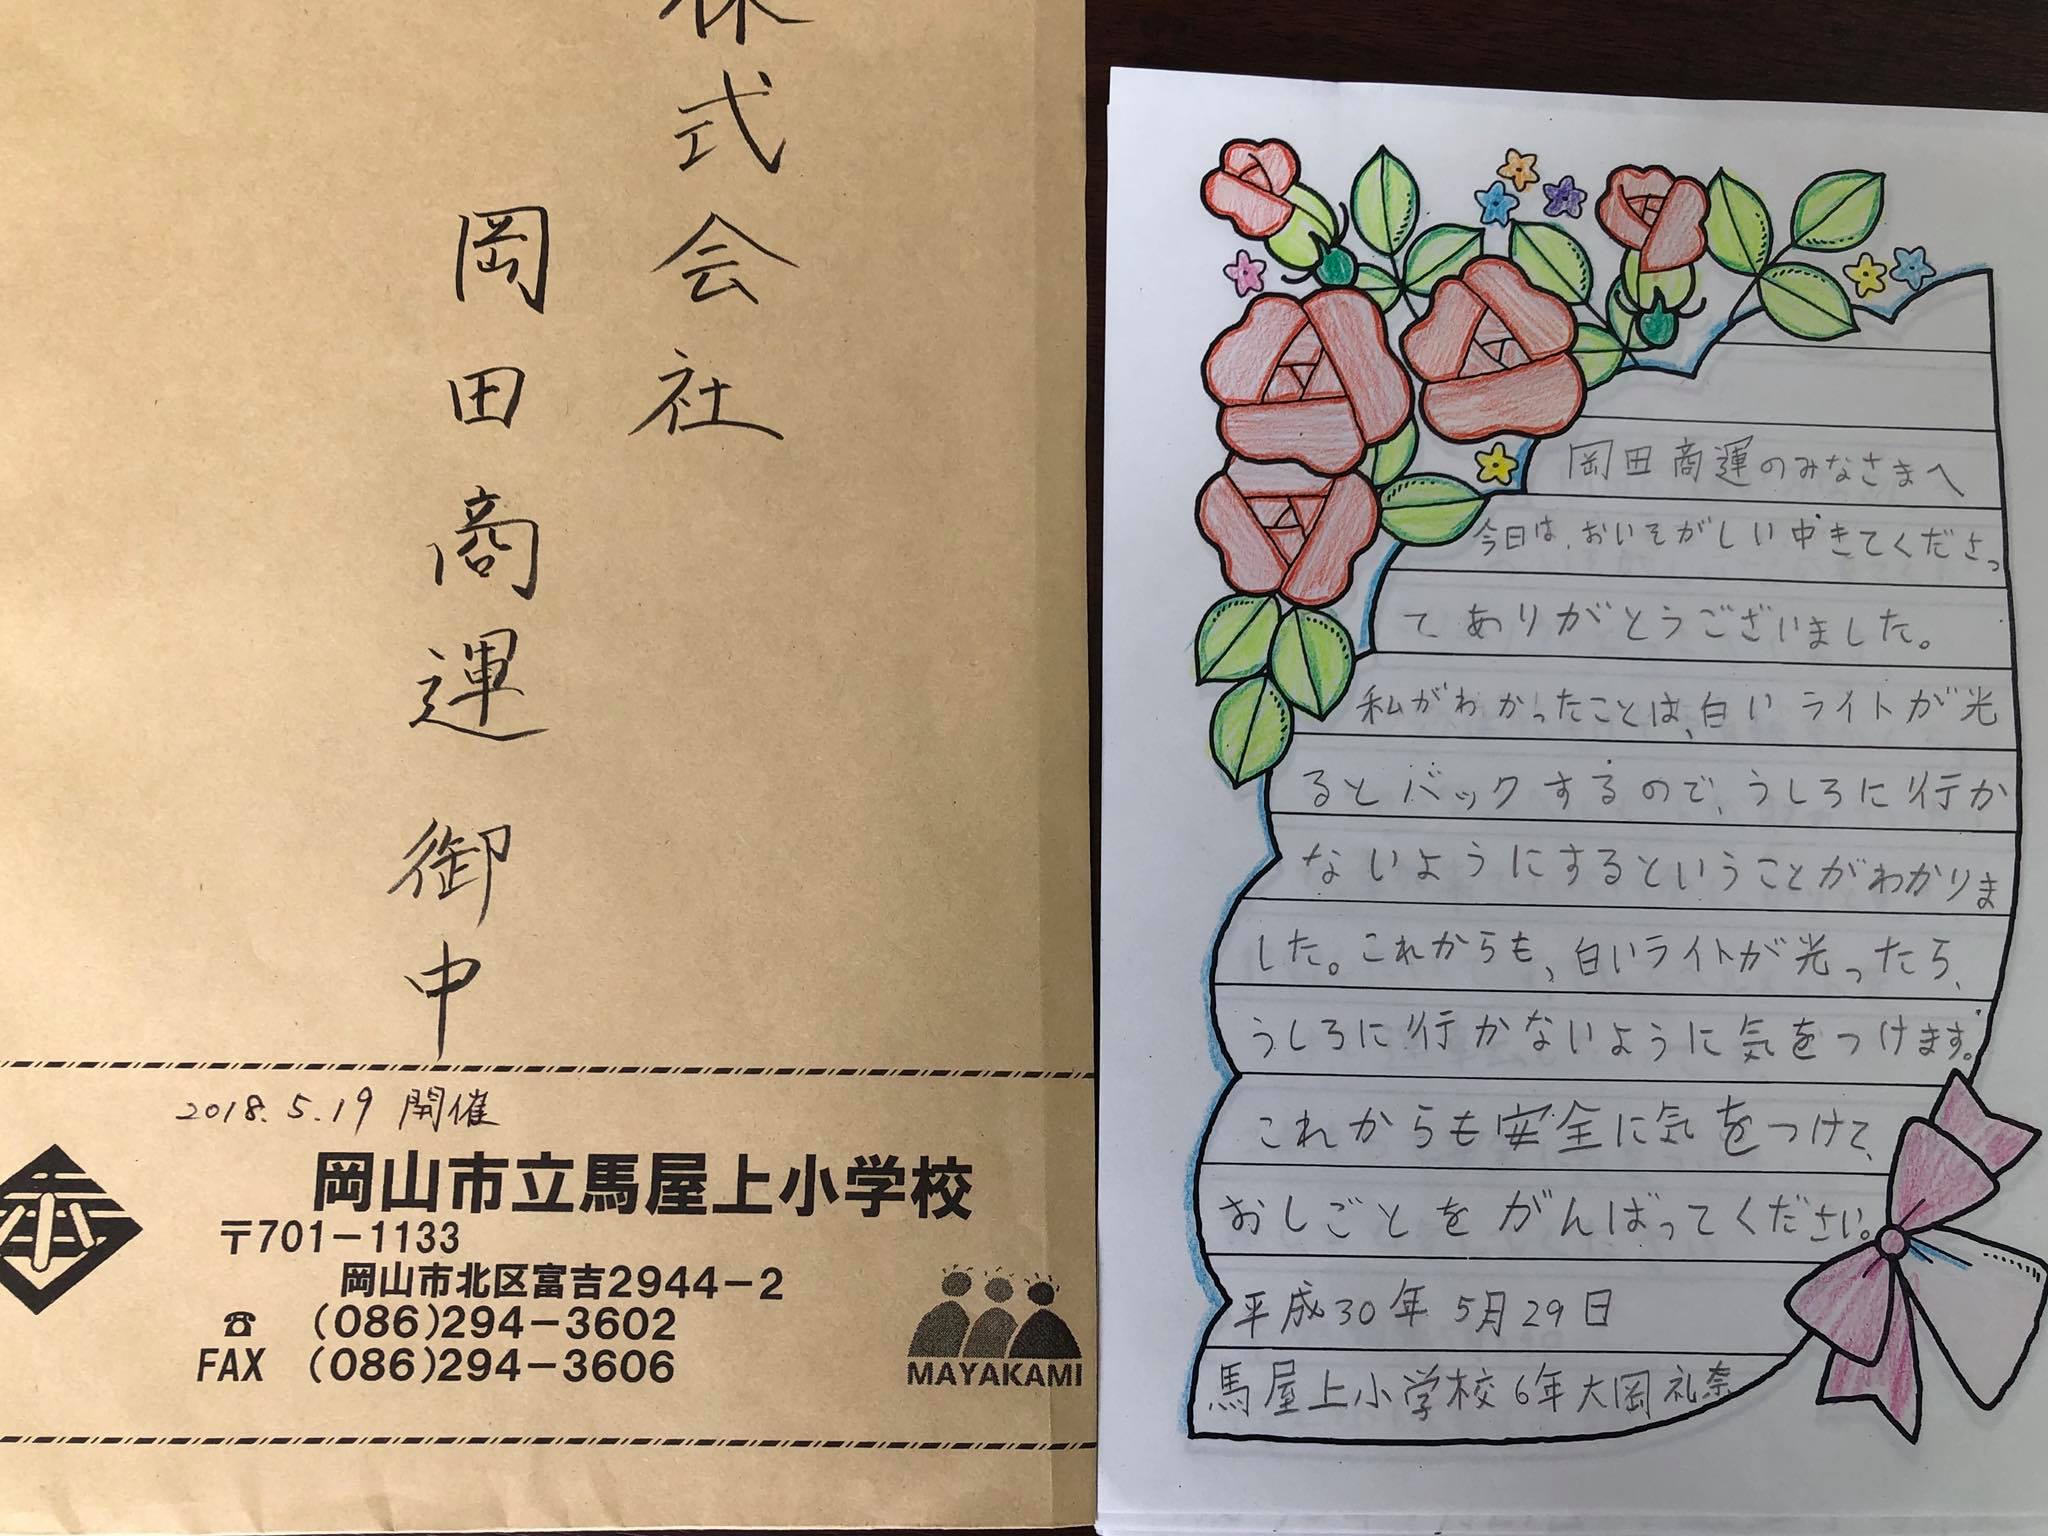 株式会社
岡田商運 御中
2018.5.19 開催
岡山市立馬屋上小学校
〒701-1133
岡山市北区富吉2944-2
☎ (086)294-3602
FAX (086)294-3606
MAYAKAMI
岡田商運のみなさまへ
今日は、おいそがしい中きてくださっ
てありがとうございました。
私がわかったことは、白いライトが光
るとバックするので、うしろに行か
ないようにするということがわかりま
した。これからも、白いライトが光ったら、
うしろに行かないように気をつけます。
これからも安全に気をつけて、
おしごとをがんばってください。
平成30年5月29日
馬屋上小学校6年大岡礼奈